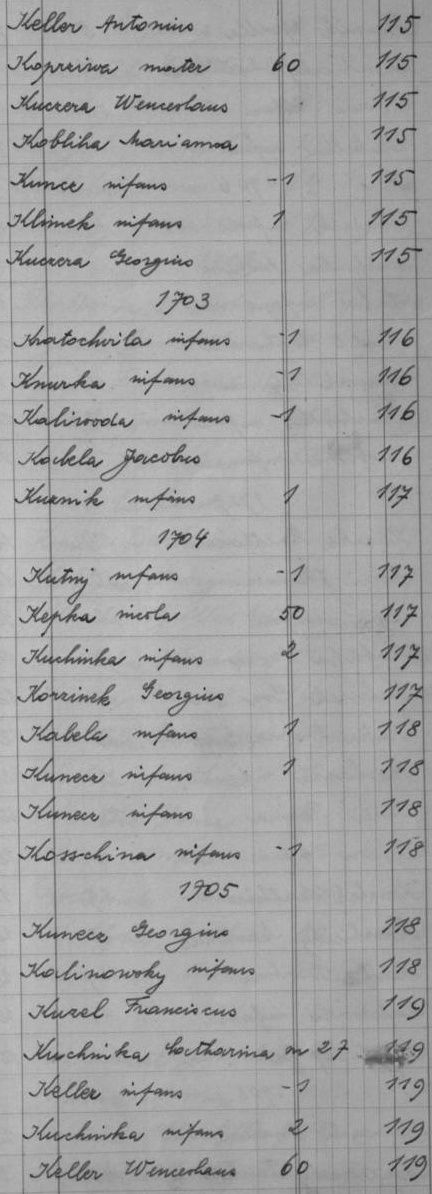 Keller Antonius 115
Koprziwa mater 60 115
Kuczera Wenceslaus 115
Kobliha Marianna 115
Kuncz infans -1 115
Klimek infans 1 115
Kuczera Georgius 115
1703
Kratochvila infans -1 116
Knurka infans -1 116
Kaliwoda infans -1 116
Kabela Jacobus 116
Kuznik infans 1 117
1704
Kutny infans -1 117
Kepka incola 50 117
Kuchinka infans 2 117
Korzinek Georgius 117
Kabela infans 1 118
Kunecz infans 1 118
Kunecz infans 118
Kosschina infans -1 118
1705
Kunecz Georgius 118
Kalinowsky infans 118
Kuzel Franciscus 119
Kuchinka Catharina m 27 119
Keller infans -1 119
Kuchinka infans 2 119
Keller Wenceslaus 60 119